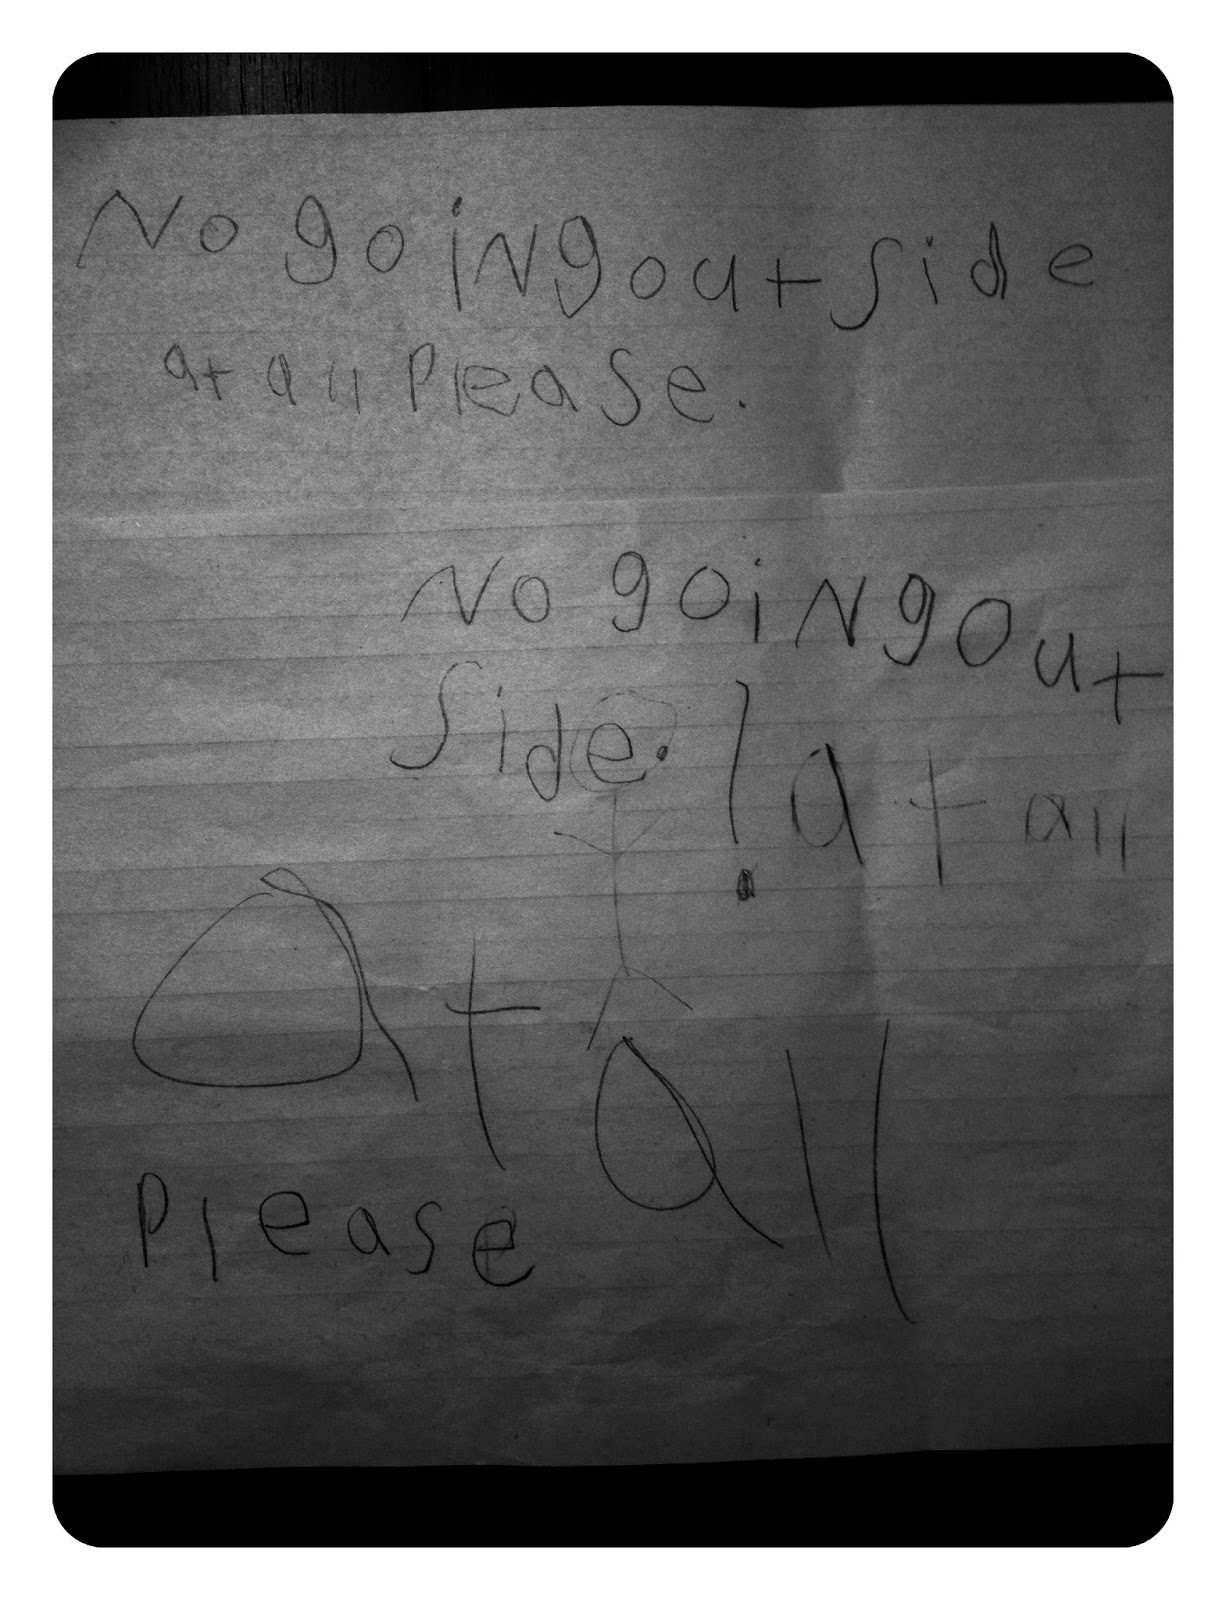 No going out side
at all Please.
No going out
side. ! at all
at all
Please